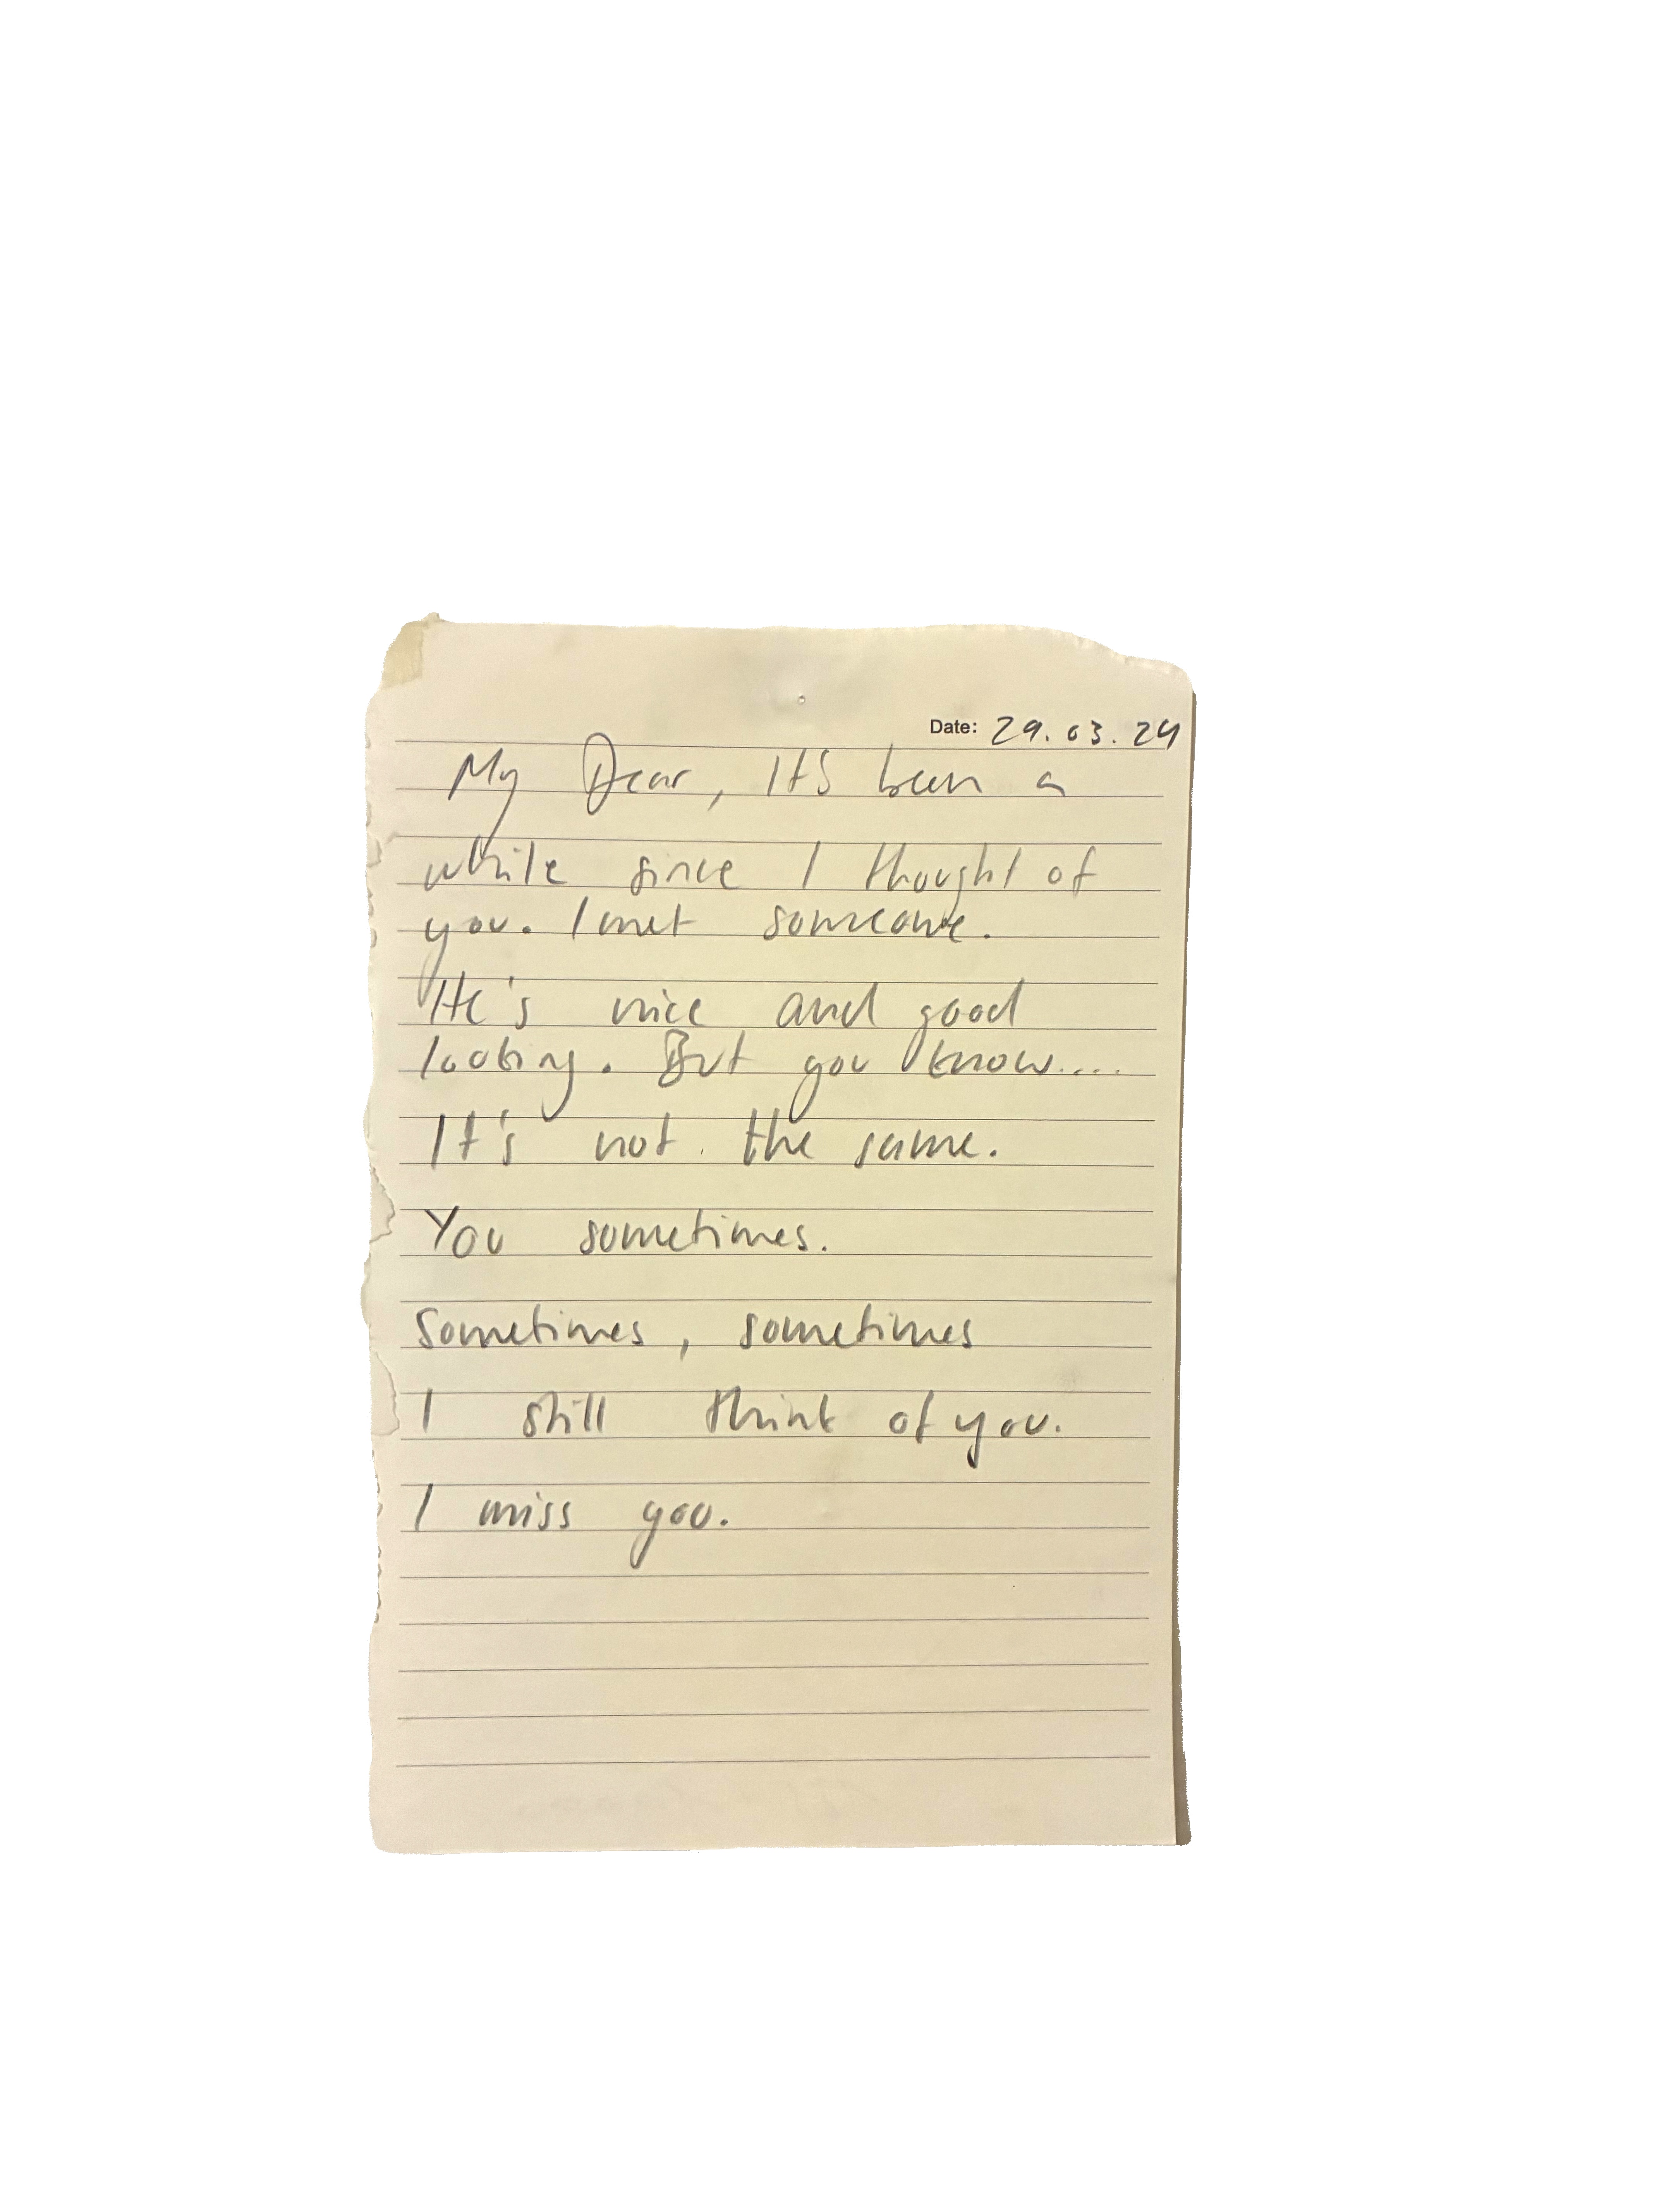 Date: 29.03.24
My Dear, ItS been a
while since I thought of
you. I met someone.
He's nice and good
looking. But you know....
It's not the same.
You sometimes.
Sometimes, sometimes
I still think of you.
I miss you.